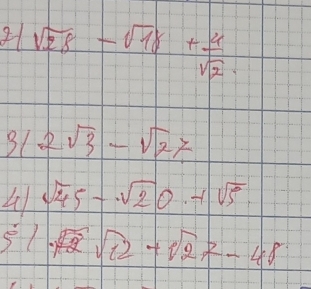 2) √28 - √18 + 4/√2.
3) 2√3 - √27
4) √45 - √20 + √5
5) √12 + √27 - 48